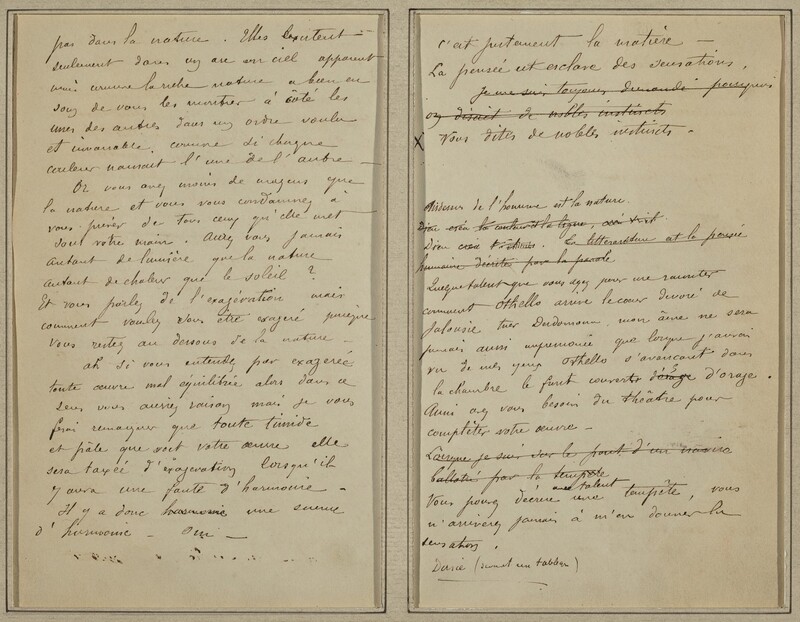 pas dans la nature. Elles existent
seulement dans un arc en ciel apparent
mais comme la riche nature a bien eu
soin de vous les montrer à côté les
unes des autres dans un ordre voulu
et invariable comme si chaque
couleur naissait l'une de l'autre —
Or vous avez moins de moyens que
la nature et vous vous condamnez à
vous priver de tous ceux qu'elle met
sous votre main. Aurez vous jamais
autant de lumière que la nature
autant de chaleur que le soleil ?
Et vous parlez de l'exagération mais
comment voulez vous être exagéré puisque
vous restez au dessous de la nature —
ah si vous entendez par exagérée
toute œuvre mal équilibrée alors dans ce
sens vous auriez raison mais je vous
ferai remarquer que toute timide
et pâle que soit votre œuvre elle
sera taxée d'exagération lorsqu'il
y aura une faute d'harmonie —
Il y a donc harmonie une science
d'harmonie — Oui —
c'est justement la matière —
La pensée est esclave des sensations,
Je me suis toujours demandé pourquoi
on disait de nobles instincts
X Vous dites de nobles instincts —
Au dessus de l'homme est la nature.
Dieu créa
Dieu La littérature est la pensée
humaine décrite par la parole
Quelque talent que vous ayez pour me raconter
comment Othello arrive le cœur dévoré de
jalousie tuer Desdemona mon âme ne sera
jamais aussi impressionée que lorsque j'aurai
vu de mes yeux Othello s'avançant dans
la chambre le front couvert d'orage .
Aussi avez vous besoin du théâtre pour
compléter votre œuvre —
Lorsque je suis sur le pont d'un navire
ballotté par la tempête
Vous pouvez décrire avec talent une tempête, vous
n'arriverez jamais à m'en donner la
sensation .